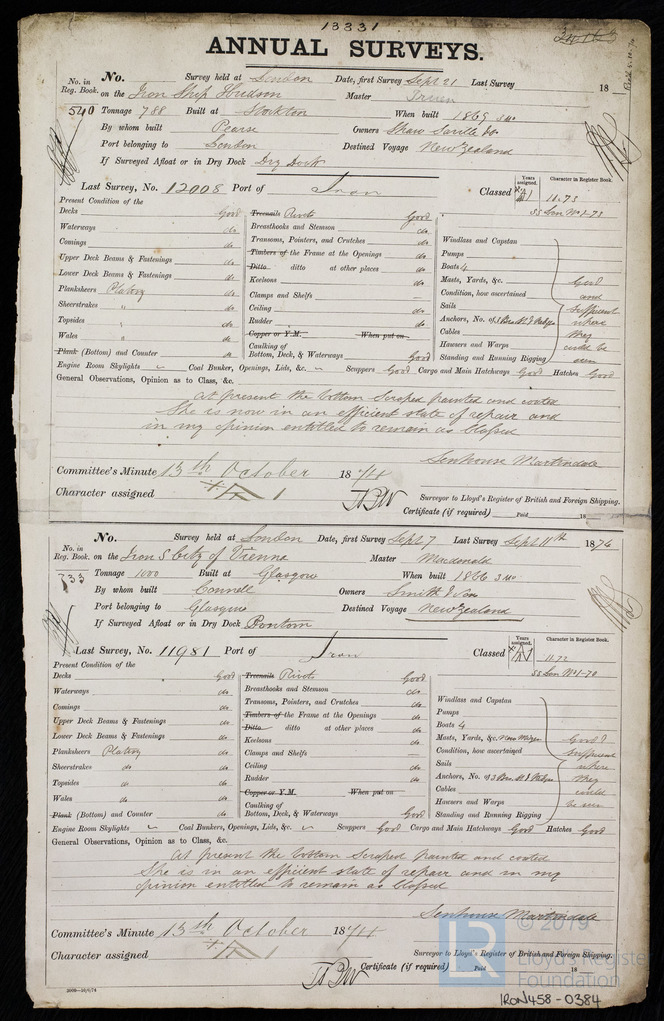 13331
ANNUAL SURVEYS.
No. in Reg. Book. No. Survey held at London Date, first Survey Sept 21 Last Survey 18
on the Iron Ship Hudson Master
540 Tonnage 788 Built at Stockton When built 1869 5 mo
By whom built Pearse Owners Shaw Saville &Co
Port belonging to London Destined Voyage New Zealand
If Surveyed Afloat or in Dry Dock Dry Dock
Last Survey, No. 12008 Port of Iron Classed Years assigned. A1 Character in Register Book. 11.73
SS Lon No1-73
Present Condition of the
Decks Good Treenails Rivets Good
Waterways do Breasthooks and Stemson do Windlass and Capstan
Comings do Transoms, Pointers, and Crutches do Pumps
Upper Deck Beams & Fastenings do Timbers of the Frame at the Openings do Boats 4
Lower Deck Beams & Fastenings do Ditto ditto at other places do Masts, Yards, &c. Good
Planksheers Plating do Keelsons do Condition, how ascertained and
Sheerstrakes " do Clamps and Shelfs — Sails sufficient
Topsides " do Ceiling do Anchors, No. of where
Wales " do Rudder do Cables they
Plank (Bottom) and Counter do Copper or Y.M. When put on Hawsers and Warps could be
Caulking of Bottom, Deck, & Waterways Good Standing and Running Rigging seen
Engine Room Skylights Coal Bunker, Openings, Lids, &c. Scuppers Good Cargo and Main Hatchways Good Hatches Good
General Observations, Opinion as to Class, &c.
at present the bottom scraped painted and coated
She is now in an efficient state of repair and
in my opinion entitled to remain as Classed
Senhouse Martindale
Committee's Minute 13th October 1874
Character assigned A 1
Surveyor to Lloyd's Register of British and Foreign Shipping.
Certificate (if required) Paid 18
No. in Reg. Book. No. Survey held at London Date, first Survey Sept 7 Last Survey Sept 11th 1874
on the Iron S City of Vienna Master Macdonald
733 Tonnage 1000 Built at Glasgow When built 1866 3 mo
By whom built Connell Owners Smith & Son
Port belonging to Glasgow Destined Voyage New Zealand
If Surveyed Afloat or in Dry Dock Pontoon
Last Survey, No. 11981 Port of Iron Classed Years assigned. A1 Character in Register Book. 11.72
SS Lon No1-70
Present Condition of the
Decks Good Treenails Rivets Good
Waterways do Breasthooks and Stemson do Windlass and Capstan
Comings do Transoms, Pointers, and Crutches do Pumps
Upper Deck Beams & Fastenings do Timbers of the Frame at the Openings do Boats 4
Lower Deck Beams & Fastenings do Ditto ditto at other places do Masts, Yards, &c. Good &
Planksheers Plating do Keelsons do Condition, how ascertained sufficient
Sheerstrakes do do Clamps and Shelfs — Sails where
Topsides do do Ceiling do Anchors, No. of they
Wales do do Rudder do Cables could
Plank (Bottom) and Counter do Copper or Y.M. When put on Hawsers and Warps be seen
Caulking of Bottom, Deck, & Waterways Good Standing and Running Rigging
Engine Room Skylights Coal Bunkers, Openings, Lids, &c. Scuppers Good Cargo and Main Hatchways Good Hatches Good
General Observations, Opinion as to Class, &c.
At present the bottom scraped painted and coated
She is in an efficient state of repair and in my
opinion entitled to remain as Classed
Senhouse Martindale
Committee's Minute 13th October 1874
Character assigned A 1
Surveyor to Lloyd's Register of British and Foreign Shipping.
Certificate (if required) Paid 18
© 2019
LR Lloyd's Register
Foundation
IRON458-0384